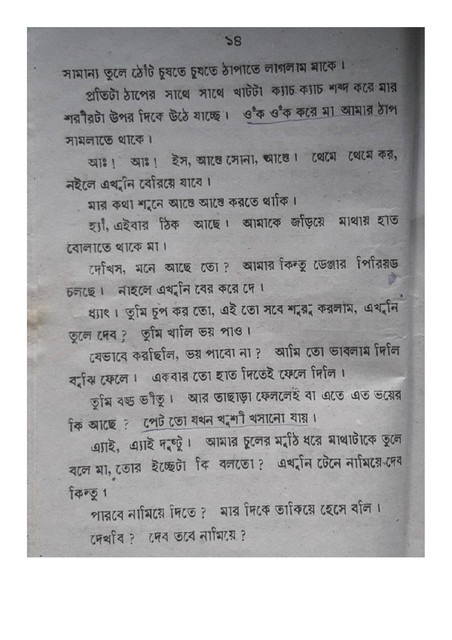 ১৪
সামান্য তুলে ঠোঁট চুষতে চুষতে ঠাপাতে লাগলাম মাকে।
প্রতিটা ঠাপের সাথে সাথে খাটটা ক্যাচ ক্যাচ শব্দ করে মার
শরীরটা উপর দিকে উঠে যাচ্ছে। ওঁক ওঁক করে মা আমার ঠাপ
সামলাতে থাকে।
আঃ! আঃ! ইস, আস্তে সোনা, আস্তে। থেমে থেমে কর,
নইলে এখুনি বেরিয়ে যাবে।
মার কথা শুনে আস্তে আস্তে করতে থাকি।
হ্যাঁ, এইবার ঠিক আছে। আমাকে জড়িয়ে মাথায় হাত
বোলাতে থাকে মা।
দেখিস, মনে আছে তো? আমার কিন্তু ডেঞ্জার পিরিয়ড
চলছে। নাহলে এখুনি বের করে দে।
ধ্যাৎ। তুমি চুপ কর তো, এই তো সবে শুরু করলাম, এখুনি
তুলে দেব? তুমি খালি ভয় পাও।
যেভাবে করছিলি, ভয় পাবো না? আমি তো ভাবলাম দিলি
বুঝি ফেলে। একবার তো হাত দিতেই ফেলে দিলি।
তুমি বড্ড ভীতু। আর তাছাড়া ফেললেই বা এতে এত ভয়ের
কি আছে? পেট তো যখন খুশী খসানো যায়।
এ্যাই, এ্যাই দুষ্টু। আমার চুলের মুঠি ধরে মাথাটাকে তুলে
বলে মা, তোর ইচ্ছেটা কি বলতো? এখুনি টেনে নামিয়ে দেব
কিন্তু।
পারবে নামিয়ে দিতে? মার দিকে তাকিয়ে হেসে বলি।
দেখবি? দেব তবে নামিয়ে?